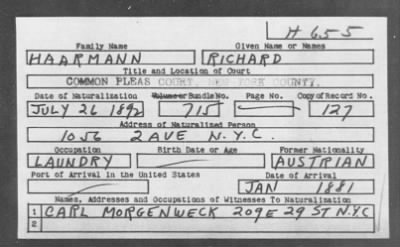 H 655
Family Name Given Name or Names
HAARMANN RICHARD
Title and Location of Court
COMMON PLEAS COURT, NEW YORK COUNTY.
Date of Naturalization Volume or Bundle No. Page No. Copy of Record No.
JULY 26 1892 715 127
Address of Naturalized Person
1056 2 AVE N.Y.C.
Occupation Birth Date or Age Former Nationality
LAUNDRY AUSTRIAN
Port of Arrival in the United States Date of Arrival
JAN 1881
Names, Addresses and Occupations of Witnesses To Naturalization
1 CARL MORGENWECK 209 E 29 ST N.Y.C
2